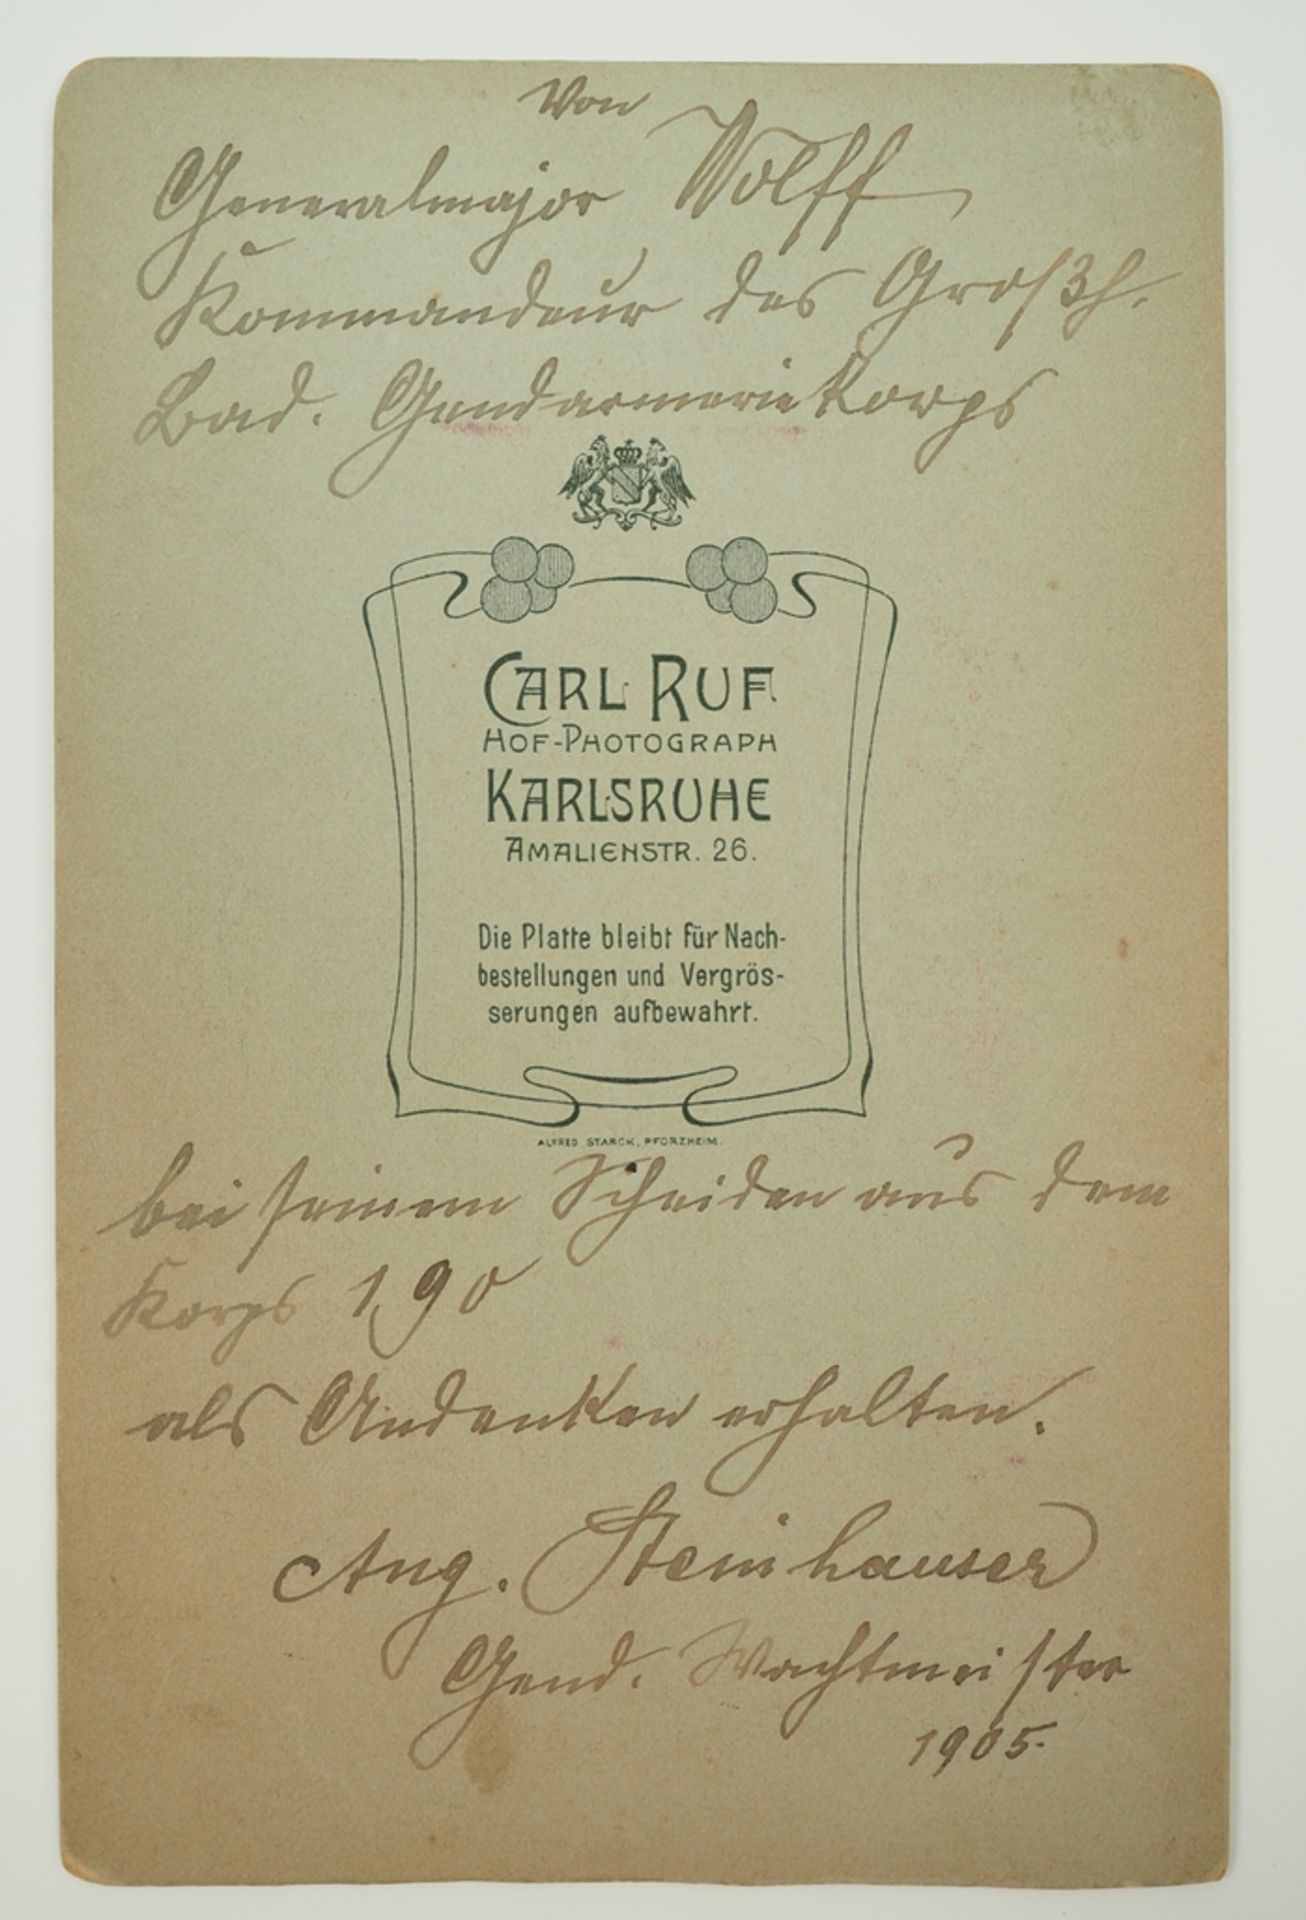 Von
Generalmajor Wolff
Kommandeur des Großh.
Bad. Gendarmeriekorps
CARL RUF
HOF-PHOTOGRAPH
KARLSRUHE
AMALIENSTR. 26.
Die Platte bleibt für Nach-
bestellungen und Vergrös-
serungen aufbewahrt.
ALFRED STARCK, PFORZHEIM.
bei seinem Scheiden aus dem
Korps 190
als Andenken erhalten.
Aug. Steinhauser
Gend. Wachtmeister
1905.